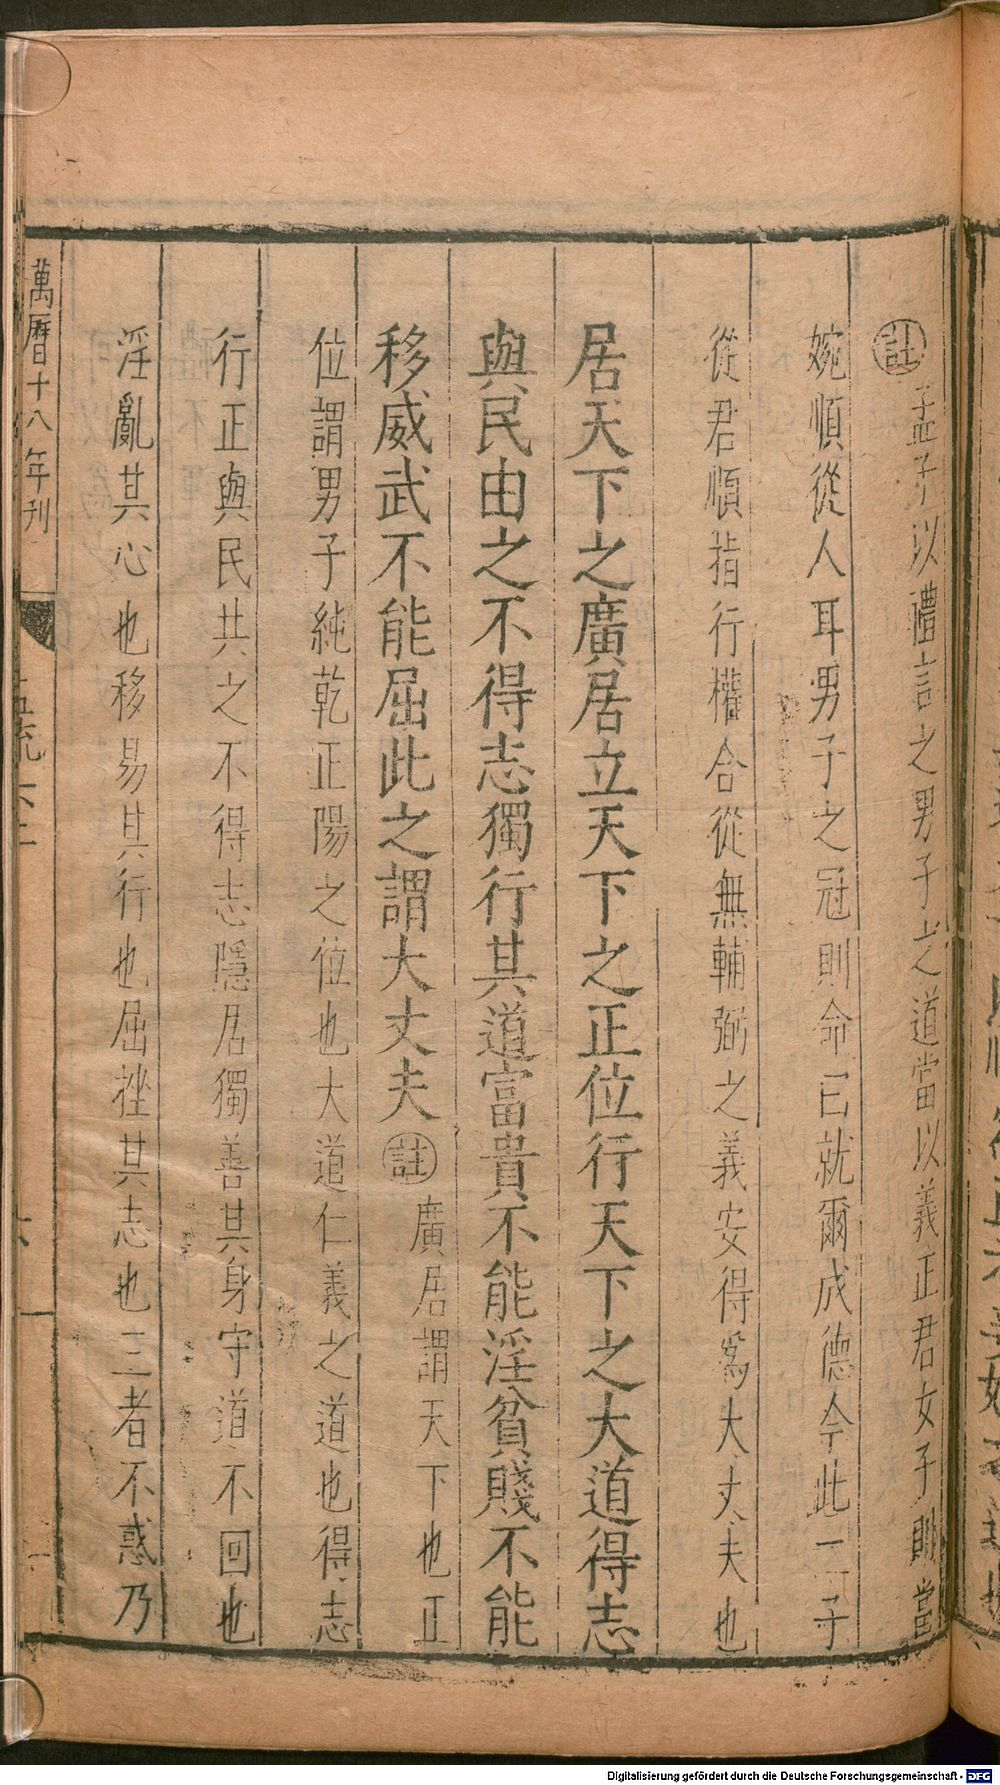 註孟子以禮言之男子之道當以義正君女子則當
婉順從人耳男子之冠則命曰就爾成德今此二子
從君順指行權合從無輔弼之義安得爲大丈夫也
居天下之廣居立天下之正位行天下之大道得志
與民由之不得志獨行其道富貴不能淫貧賤不能
移威武不能屈此之謂大丈夫註廣居謂天下也正
位謂男子純乾正陽之位也大道仁義之道也得志
行正與民共之不得志隱居獨善其身守道不回也
淫亂其心也移易其行也屈挫其志也三者不惑乃
萬曆十八年刊
Digitalisierung gefördert durch die Deutsche Forschungsgemeinschaft - DFG